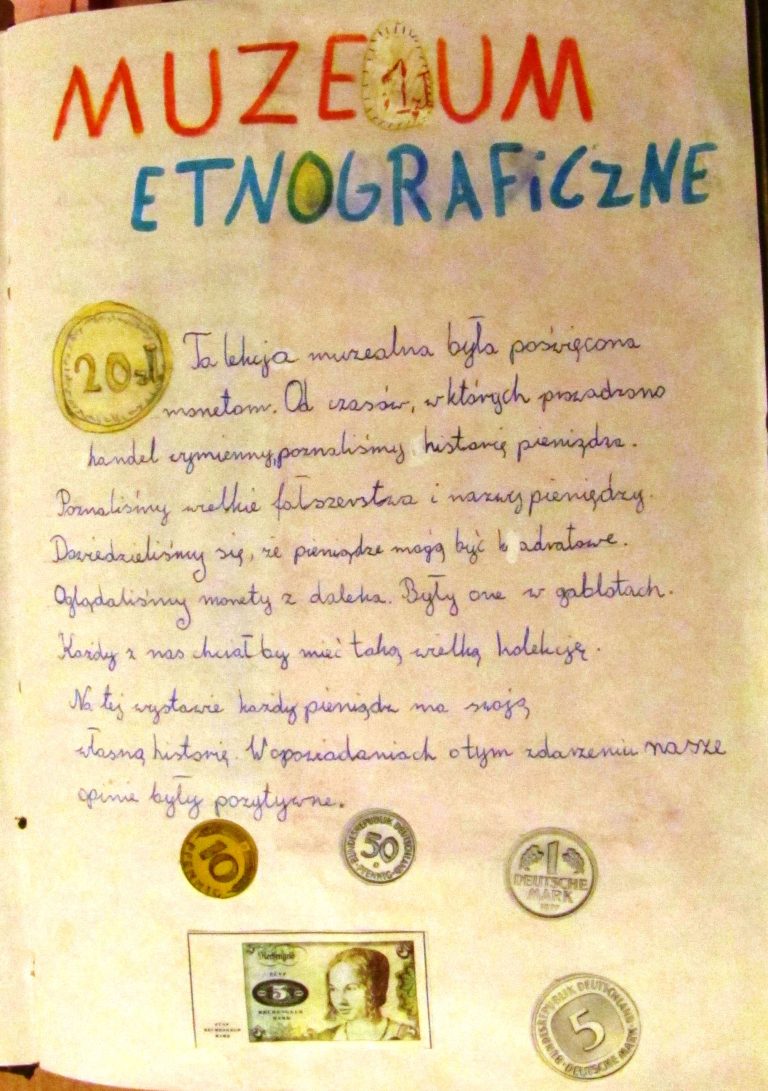 MUZEUM
ETNOGRAFiCZNE
20 zł
Ta lekcja muzealna była poświęcona
monetom. Od czasów, w których prowadzono
handel wymienny, poznaliśmy historię pieniądza.
Poznaliśmy wielkie fałszerstwa i nazwy pieniędzy.
Dowiedzieliśmy się, że pieniądze mogą być kwadratowe.
Oglądaliśmy monety z daleka. Były one w gablotach.
Każdy z nas chciał by mieć taką wielką kolekcję.
Na tej wystawie każdy pieniądz ma swoją
własną historię. W opowiadaniach o tym zdarzeniu nasze
opinie były pozytywne.
10
PFENNIG
50
BUNDESREPUBLIK DEUTSCHLAND
PFENNIG
1
DEUTSCHE
MARK
FÜNF
5
RECHENGELD
MARK
FÜNF
RECHENGELD
MARK
5
5
BUNDESREPUBLIK DEUTSCHLAND
5
DEUTSCHE MARK